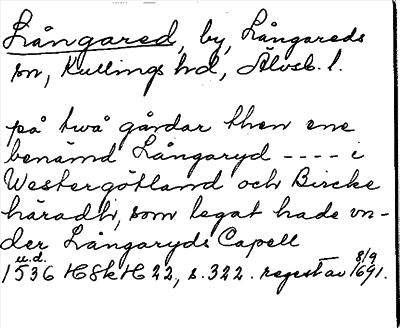 Långared, by, Långareds
sn, Kullings hd, Älvsb. l.
på twå gårdar then ene
benämd Långaryd ---- i
Westergötland och Bircke
häradh, som legat hade vn-
der Långaryds Capell
u.d.
1536 HSkH 22, s. 322. regest av 8/9 1691.